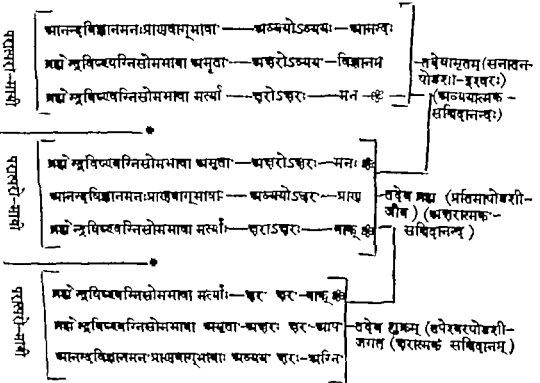 परात्परो-मायी
आनन्दविज्ञानमनःप्राणवाग्भावा — अव्ययोऽव्ययः — आनन्दः
ब्रह्मेन्द्रविष्ण्वग्निसोमभावा अमृता — अक्षरोऽव्यय — विज्ञानम
ब्रह्मेन्द्रविष्ण्वग्निसोमभावा मर्त्याः — क्षरोऽक्षरः — मन
तदेवामृतम् (सनातन-
षोडशी-ईश्वरः)
(अव्ययात्मक-
सच्चिदानन्दः)
परात्परो-मायी
ब्रह्मेन्द्रविष्ण्वग्निसोमभावा अमृता — अक्षरोऽक्षरः — मनः
आनन्दविज्ञानमनःप्राणवाग्भावाः — अव्ययोऽक्षर — प्राण
ब्रह्मेन्द्रविष्ण्वग्निसोमभावा मर्त्याः — क्षराऽक्षरः — वाक्
तदेव ब्रह्म (प्रतिमाषोडशी-
जीव) (अक्षरात्मक-
सच्चिदानन्द)
परात्परो-मायी
ब्रह्मेन्द्रविष्ण्वग्निसोमभावा मर्त्याः — क्षर क्षर — वाक्
ब्रह्मेन्द्रविष्ण्वग्निसोमभावा अमृता — अक्षरः क्षर — आप
आनन्दविज्ञानमनःप्राणवाग्भावाः अव्यय क्षरः — अग्नि
तदेव शुक्रम् (उपेश्वरषोडशी-
जगत् (क्षरात्मकं सच्चिदानम्)